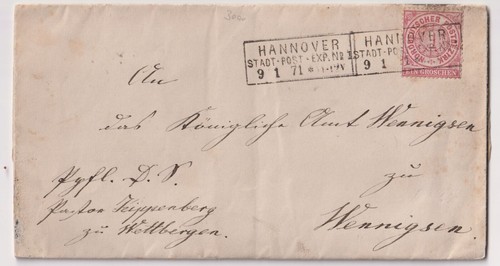 HANNOVER
STADT-POST-EXP. No 1
9 1 71
HAN
STADT-PO
9 1
NORDDEUTSCHER POSTBEZIRK
EIN GROSCHEN
An
das Königliche Amt Wennigsen
zu
Wennigsen.
Ppfl. D. S.
Pastor
zu Wettbergen.